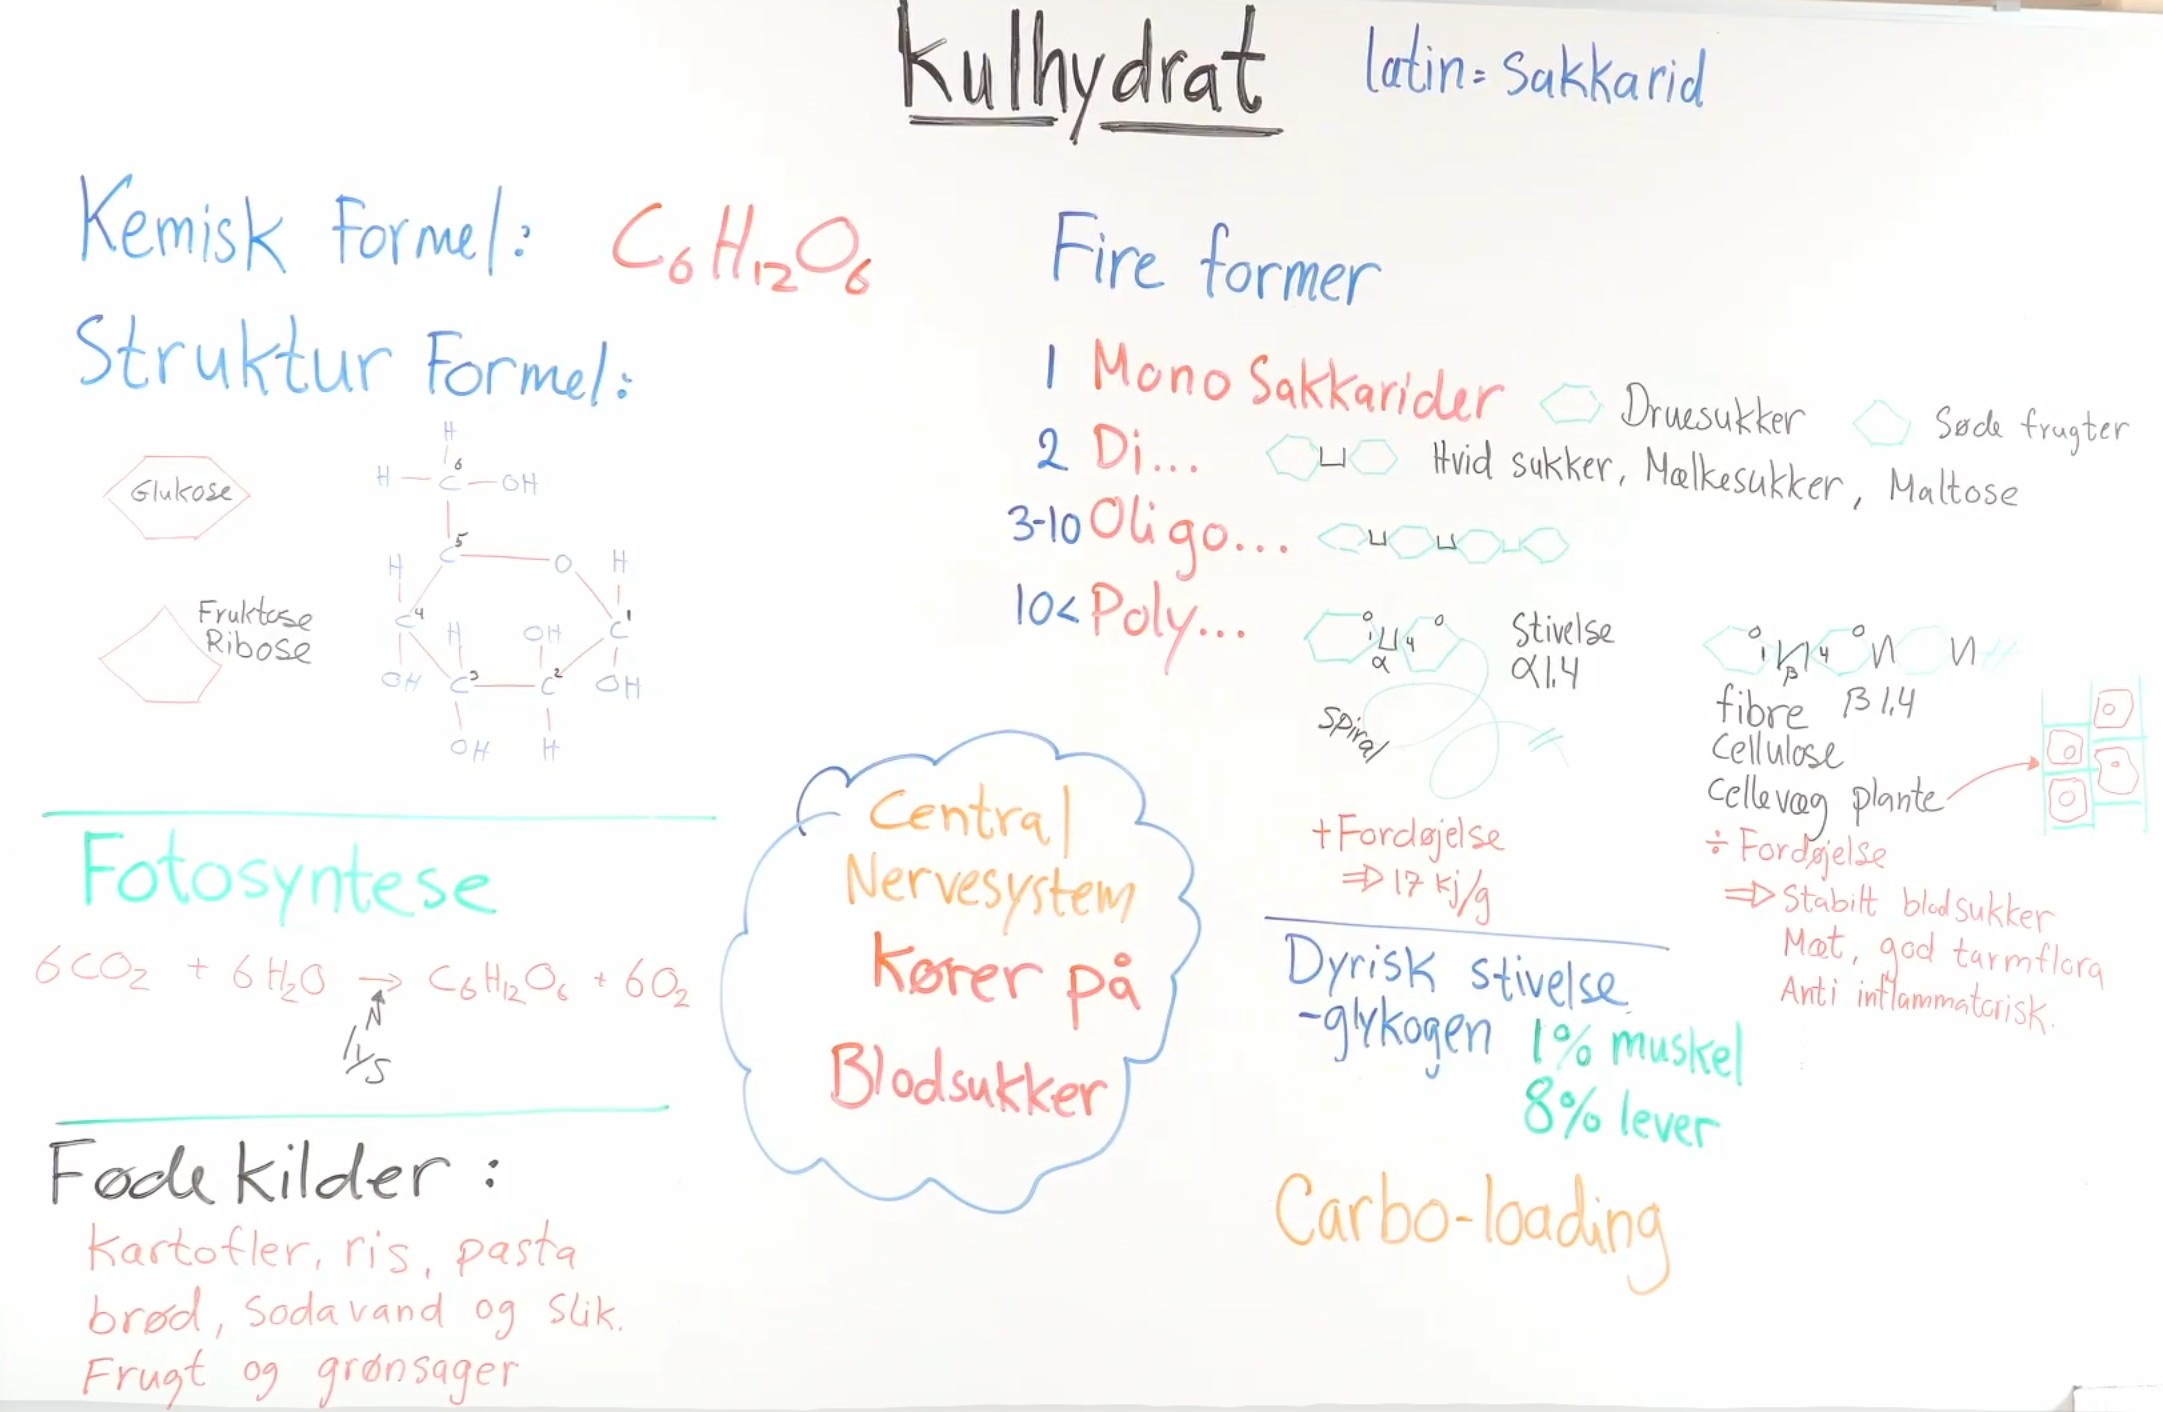 Kulhydrat latin= Sakkarid
Kemisk Formel: C6H12O6
Struktur Formel:
Glukose
H
H 6C OH
C5 O
H H
C4 C1
H OH
OH C3 C2 OH
OH H
Fruktose
Ribose
Fotosyntese
6CO2 + 6H2O → C6H12O6 + 6O2
lys
Føde kilder:
Kartofler, ris, pasta
brød, Sodavand og Slik.
Frugt og grønsager
Central
Nervesystem
Kører på
Blodsukker
Fire former
1 Mono Sakkarider Druesukker Søde frugter
2 Di... Hvid sukker, Mælkesukker, Maltose
3-10 Oligo...
10< Poly...
O 1 4 O
α
Stivelse
α1,4
Spiral
+Fordøjelse
⇒ 17 kj/g
O 1 4 O
β
fibre β1,4
Cellulose
Cellevæg plante
÷ Fordøjelse
⇒ Stabilt blodsukker
Mæt, god tarmflora
Anti inflammatorisk.
Dyrisk stivelse
-glykogen 1% muskel
8% lever
Carbo-loading